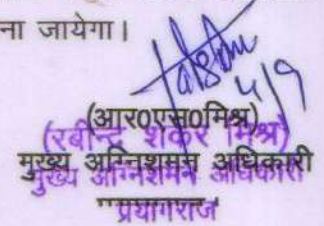 ना जायेगा।
4/9
(आर0एस0मिश्र)
(रबीन्द्र शंकर मिश्र)
मुख्य अग्निशमन अधिकारी
मुख्य अग्निशमन अधिकारी
प्रयागराज